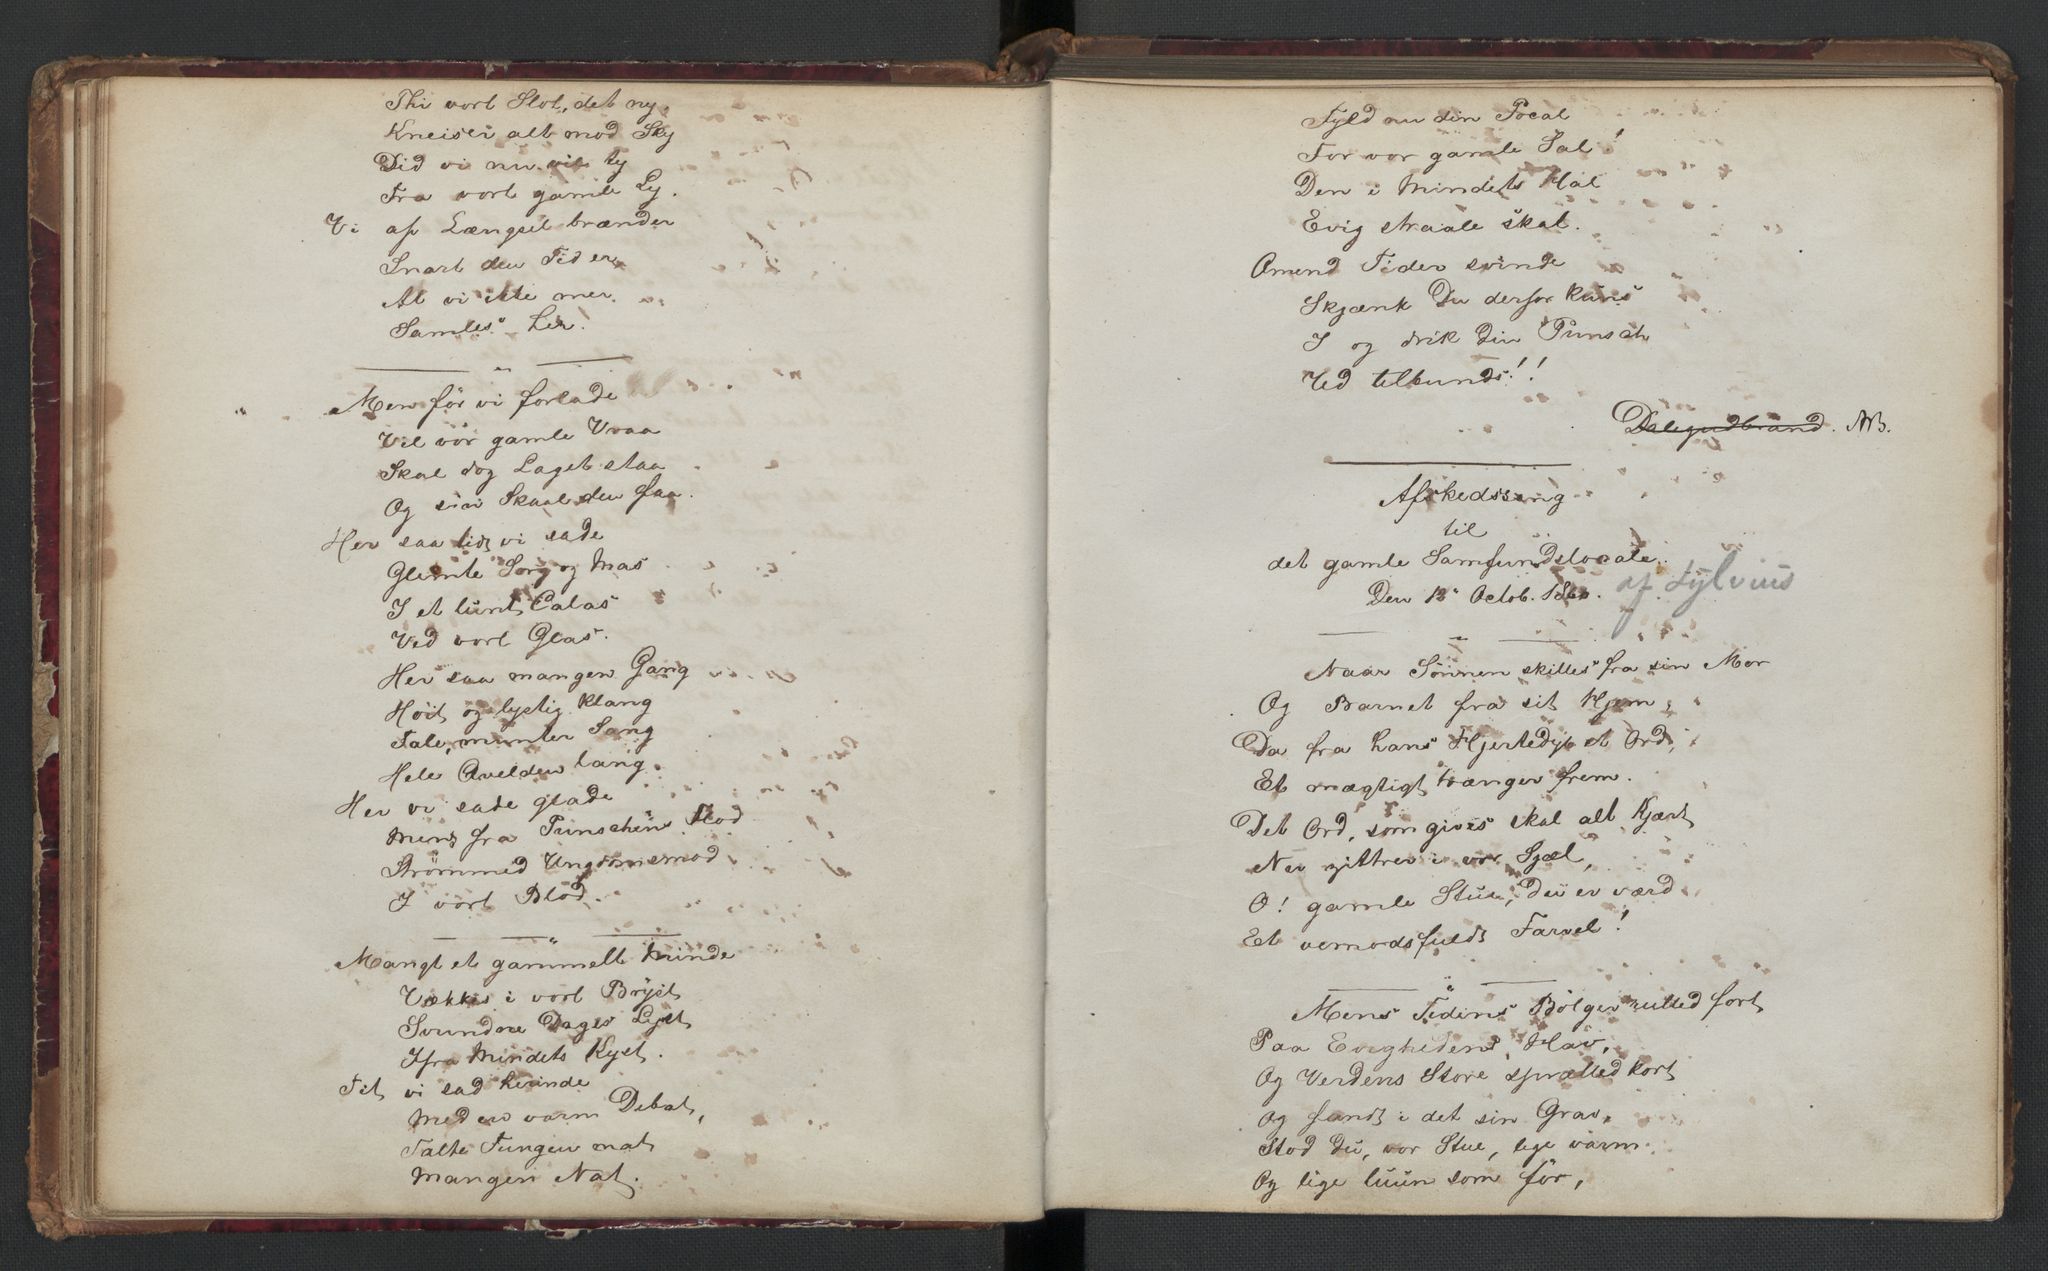 Thi vort Slot, det ny,
Kneiser alt mod Sky
Did vi nu vil ty
Fra vort gamle Ly.
Vi af Længsel brænder
Snart den Tid er
At vi ikke mer
Samles her.
Men før vi forlade
Vil vor gamle Vraa
Skal dog Laget staa
Og sin Skaal den faa.
Her saa tidt vi sade
Glemte Sorg og Mas
I et lunt Calas
Ved vort Glas.
Her saa mangen Gang
Høit og lystig Klang
Tale, munter Sang
Hele Qvelden lang.
Her vi sade glade
Mens fra Punschens Flod
Strømmed Ungdomsmod
I vort Blod.
Mangt et gammelt Minde
Vækkes i vort Bryst
Svundne Dages Lyst
Ifra Mindets Kyst.
Tit vi sad herinde
Med en varm Debat,
Talte Tungen mat
Mangen Nat.
Fyld nu din Pocal
For vor gamle Sal!
Den i Mindets Hal
Evig straale skal.
Omend Tider svinde
Skjænk Du derfor kuns
I og drik Din Punsch
Ud tilbunds!!
Dalegudbrand. AB.
Afskedssang
til
det gamle Samfundslocale.
Den 13 Octob. 1860. af Sylvius
Naar Sønnen skilles fra sin Mor
Og Barnet fra sit Hjem,
Da fra hans Hjertedyb et Ord,
Et mægtigt trænger frem.
Det Ord, som gives skal alt Kjært
Nu zittrer i vor Sjæl,
O! gamle Stue, Du er værd
Et vemodsfuldt Farvel!
Mens Tidens Bølger rulled fort
Paa Evighedens Hav,
Og Verdens Store sprælled kort
Og fandt i det sin Grav,
Stod Du, vor Stue, lige varm
Og lige luun som før,